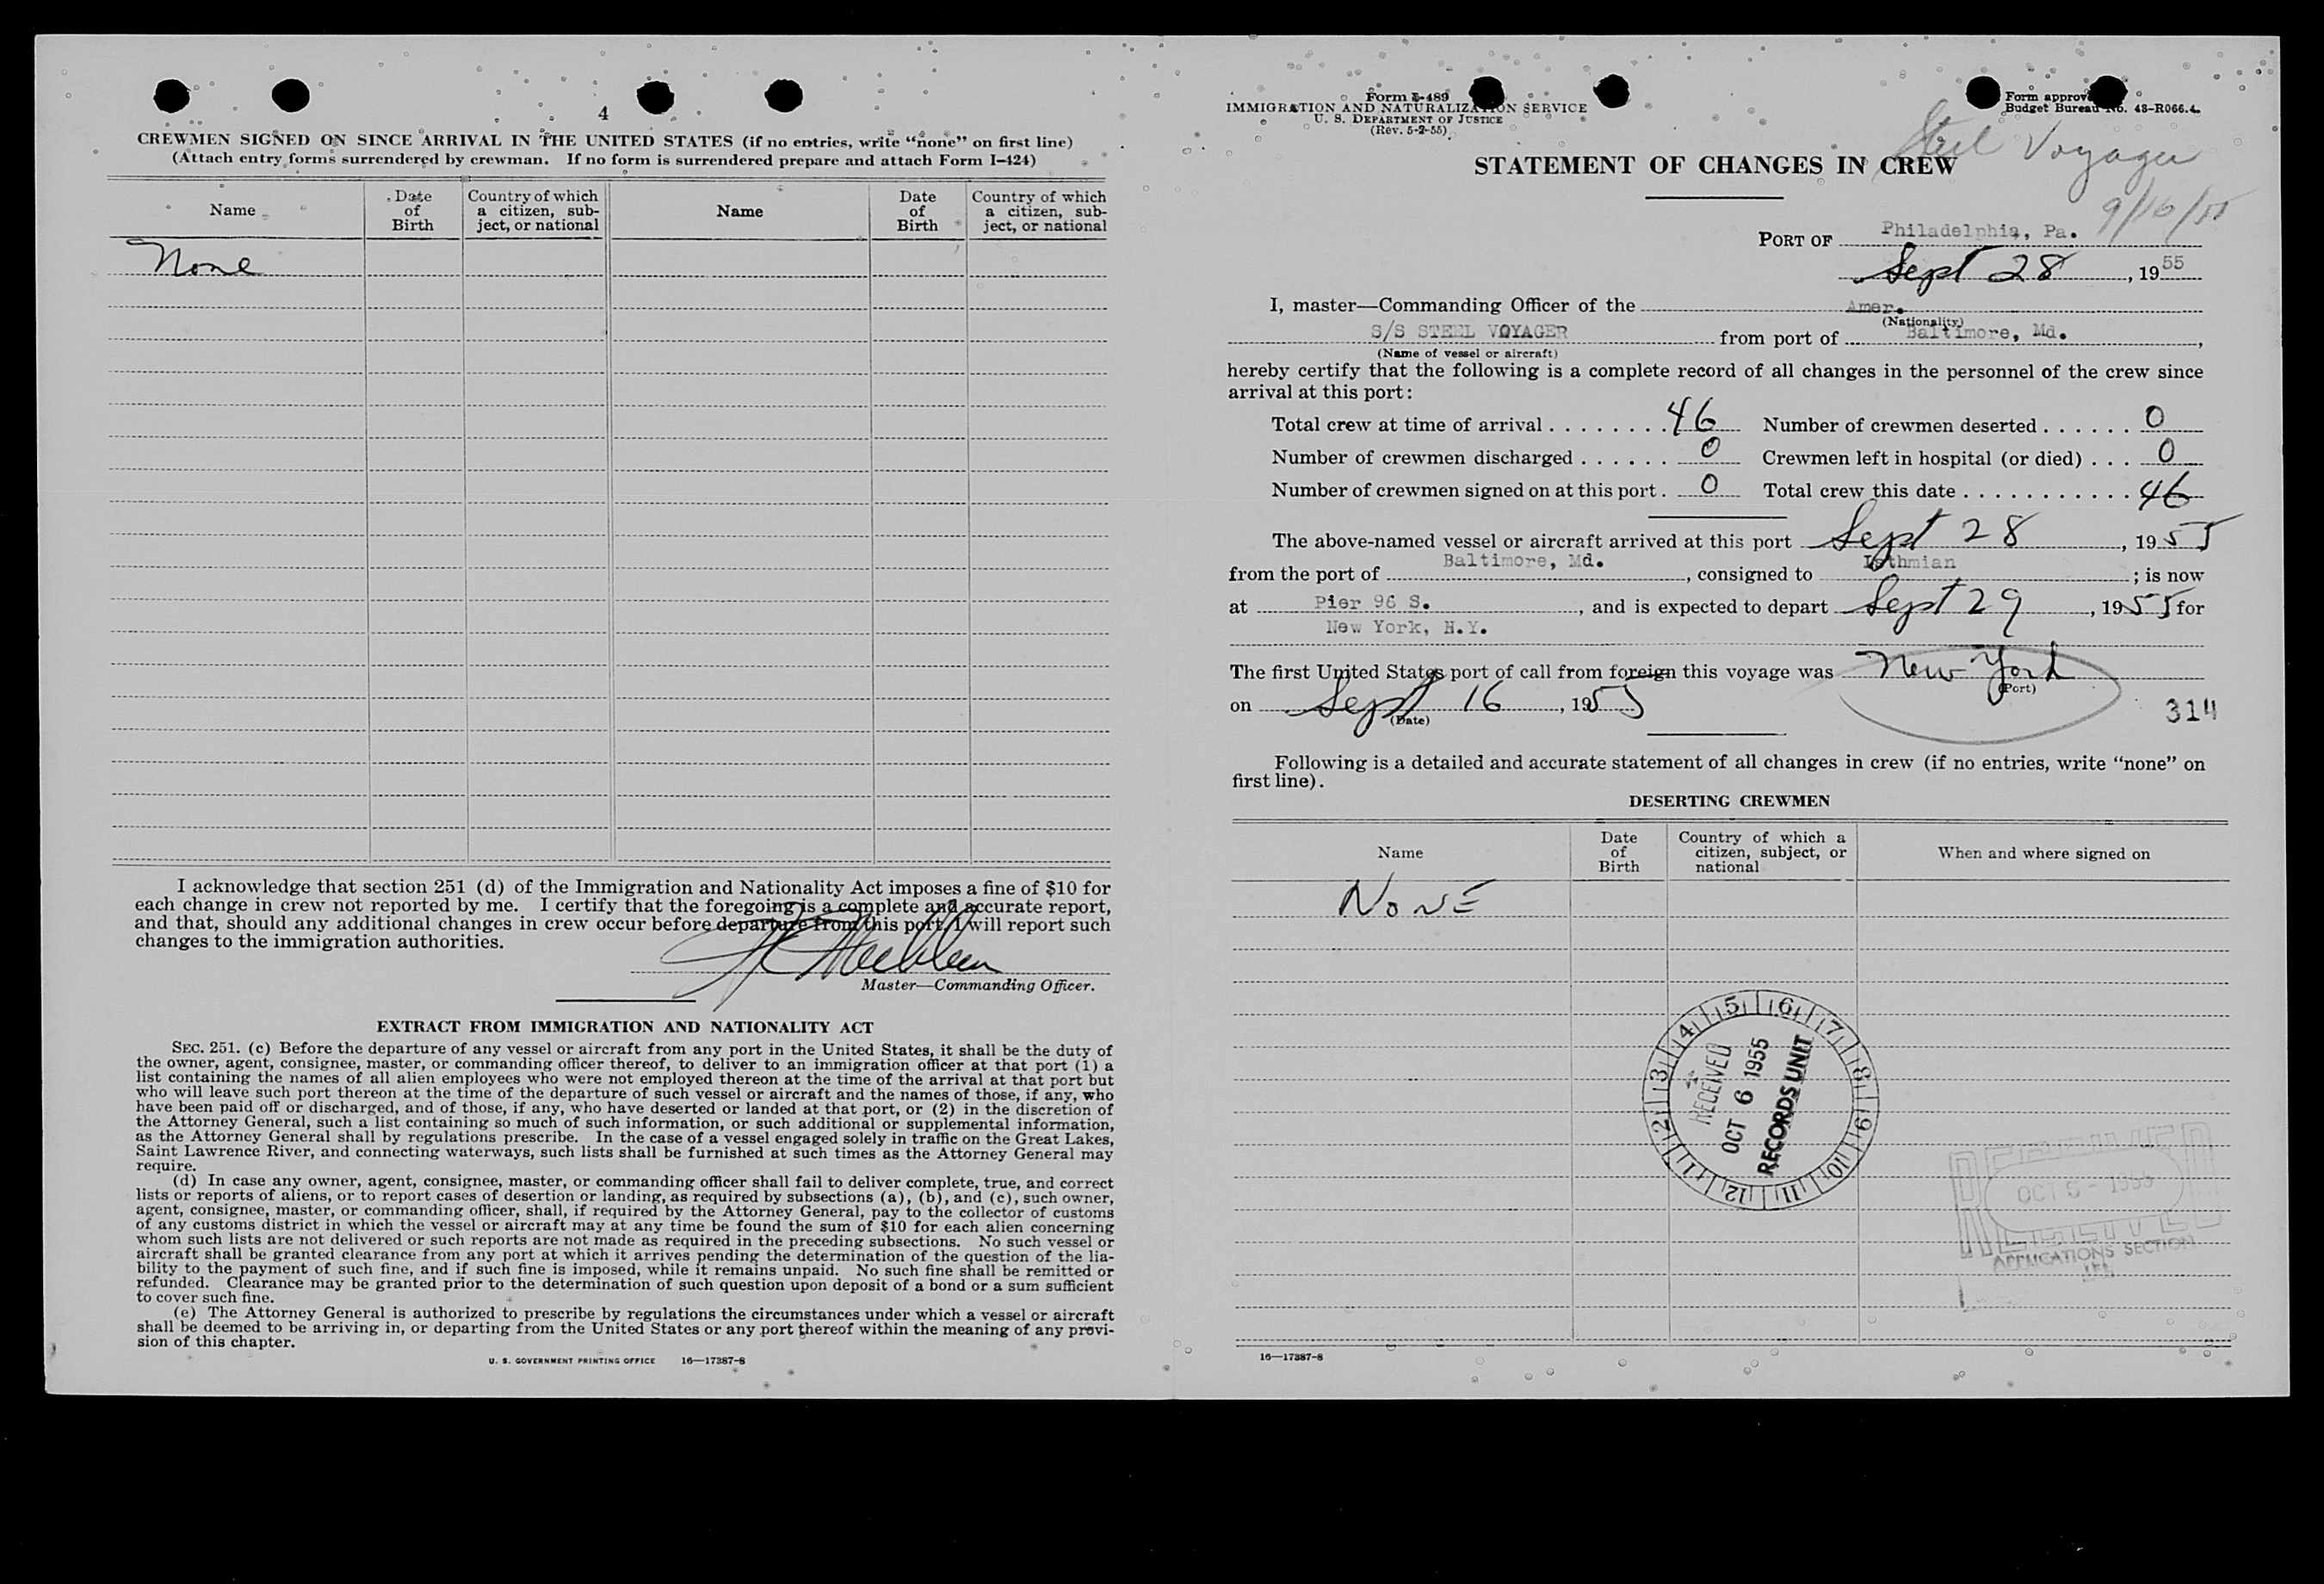 4
CREWMEN SIGNED ON SINCE ARRIVAL IN THE UNITED STATES (if no entries, write “none” on first line)
(Attach entry forms surrendered by crewman. If no form is surrendered prepare and attach Form I–424)
Name
Date of Birth
Country of which a citizen, sub-ject, or national
Name
Date of Birth
Country of which a citizen, sub-ject, or national
None
I acknowledge that section 251 (d) of the Immigration and Nationality Act imposes a fine of $10 for
each change in crew not reported by me. I certify that the foregoing is a complete and accurate report,
and that, should any additional changes in crew occur before departure from this port, I will report such
changes to the immigration authorities.
Master—Commanding Officer.
EXTRACT FROM IMMIGRATION AND NATIONALITY ACT
SEC. 251. (c) Before the departure of any vessel or aircraft from any port in the United States, it shall be the duty of
the owner, agent, consignee, master, or commanding officer thereof, to deliver to an immigration officer at that port (1) a
list containing the names of all alien employees who were not employed thereon at the time of the arrival at that port but
who will leave such port thereon at the time of the departure of such vessel or aircraft and the names of those, if any, who
have been paid off or discharged, and of those, if any, who have deserted or landed at that port, or (2) in the discretion of
the Attorney General, such a list containing so much of such information, or such additional or supplemental information,
as the Attorney General shall by regulations prescribe. In the case of a vessel engaged solely in traffic on the Great Lakes,
Saint Lawrence River, and connecting waterways, such lists shall be furnished at such times as the Attorney General may
require.
(d) In case any owner, agent, consignee, master, or commanding officer shall fail to deliver complete, true, and correct
lists or reports of aliens, or to report cases of desertion or landing, as required by subsections (a), (b), and (c), such owner,
agent, consignee, master, or commanding officer, shall, if required by the Attorney General, pay to the collector of customs
of any customs district in which the vessel or aircraft may at any time be found the sum of $10 for each alien concerning
whom such lists are not delivered or such reports are not made as required in the preceding subsections. No such vessel or
aircraft shall be granted clearance from any port at which it arrives pending the determination of the question of the lia-
bility to the payment of such fine, and if such fine is imposed, while it remains unpaid. No such fine shall be remitted or
refunded. Clearance may be granted prior to the determination of such question upon deposit of a bond or a sum sufficient
to cover such fine.
(e) The Attorney General is authorized to prescribe by regulations the circumstances under which a vessel or aircraft
shall be deemed to be arriving in, or departing from the United States or any port thereof within the meaning of any provi-
sion of this chapter.
U. S. GOVERNMENT PRINTING OFFICE 16—17387-8
Form I-489
IMMIGRATION AND NATURALIZATION SERVICE
U. S. DEPARTMENT OF JUSTICE
(Rev. 5-2-55)
Form approv
Budget Bureau No. 43-R066.4.
Steel Voyager
9/16/55
STATEMENT OF CHANGES IN CREW
PORT OF Philadelphia, Pa.
Sept 28, 1955
I, master—Commanding Officer of the Amer.
(Nationality)
S/S STEEL VOYAGER from port of Baltimore, Md.,
(Name of vessel or aircraft)
hereby certify that the following is a complete record of all changes in the personnel of the crew since
arrival at this port:
Total crew at time of arrival . . . . . . . . 46 Number of crewmen deserted . . . . . . 0
Number of crewmen discharged . . . . . . 0 Crewmen left in hospital (or died) . . . 0
Number of crewmen signed on at this port . 0 Total crew this date . . . . . . . . . . . . 46
The above-named vessel or aircraft arrived at this port Sept 28, 1955
from the port of Baltimore, Md., consigned to Isthmian; is now
at Pier 96 S., and is expected to depart Sept 29, 1955 for
New York, N.Y.
The first United States port of call from foreign this voyage was New York
(Port)
on Sept 16, 1955
(Date)
314
Following is a detailed and accurate statement of all changes in crew (if no entries, write “none” on
first line).
DESERTING CREWMEN
Name
Date of Birth
Country of which a citizen, subject, or national
When and where signed on
NONE
1 2 3 4 5 6 7 8 9 10 11 12
RECEIVED
OCT 6 1955
RECORDS UNIT
RECEIVED
OCT 5 - 1955
RECEIVED
APPLICATIONS SECTION
16—17387-8